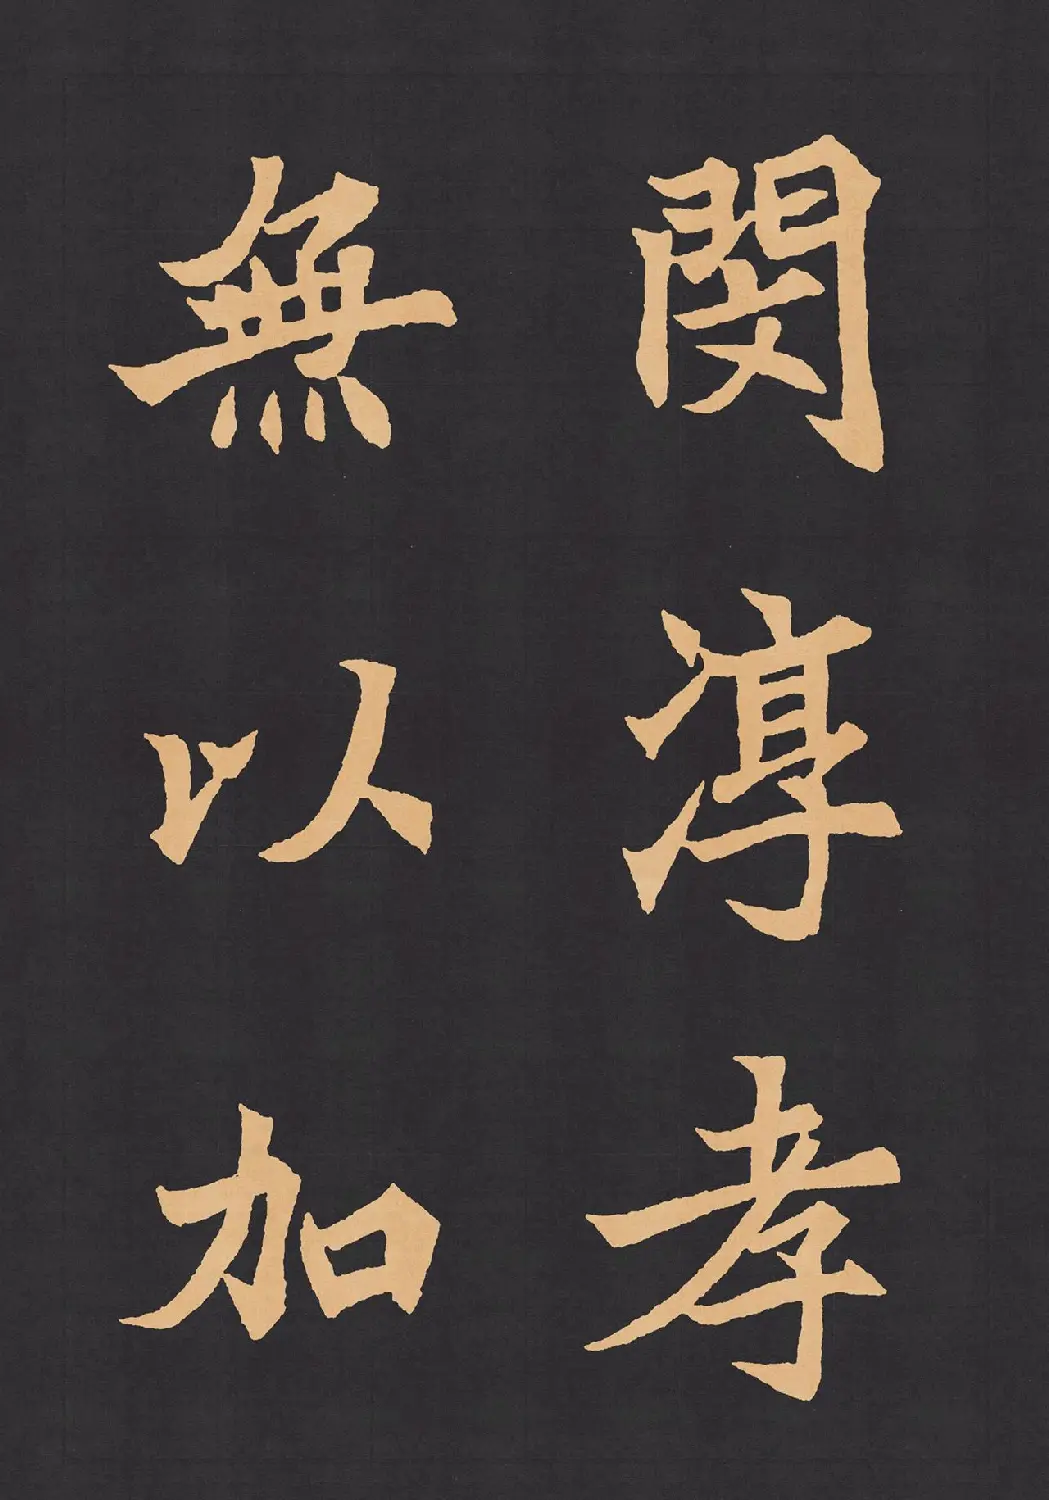 閔淳孝
無以加